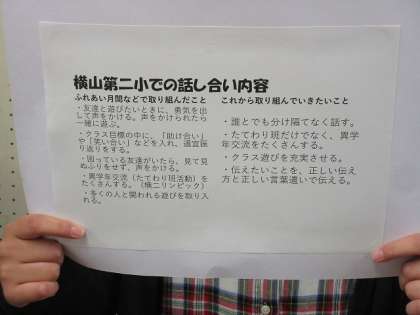 横山第二小での話し合い内容
ふれあい月間などで取り組んだこと
・友達と遊びたいときに、勇気を出
して声をかける。声をかけられたら
一緒に遊ぶ。
・クラス目標の中に、「助け合い」
や「笑い合い」などを入れ、適宜振
り返りをする。
・困っている友達がいたら、見て見
ぬふりをせず、声をかける。
・異学年交流（たてわり班活動）を
たくさんする。（横二リンピック）
・多くの人と関われる遊びを取り入
れる。
これから取り組んでいきたいこと
・誰とでも分け隔てなく話す。
・たてわり班だけでなく、異学
年交流をたくさんする。
・クラス遊びを充実させる。
・伝えたいことを、正しい伝え
方と正しい言葉遣いで伝える。